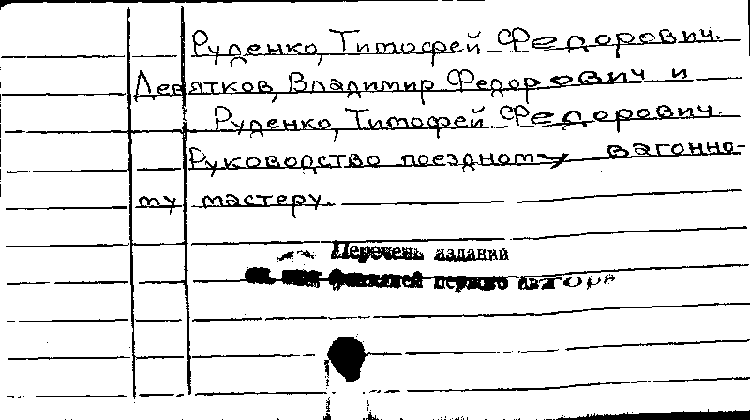 Руденко, Тимофей Федорович.
Девятков, Владимир Федорович и
Руденко, Тимофей Федорович.
Руководство поездному вагонно-
му мастеру.
Перечень изданий
под фамилией первого автора